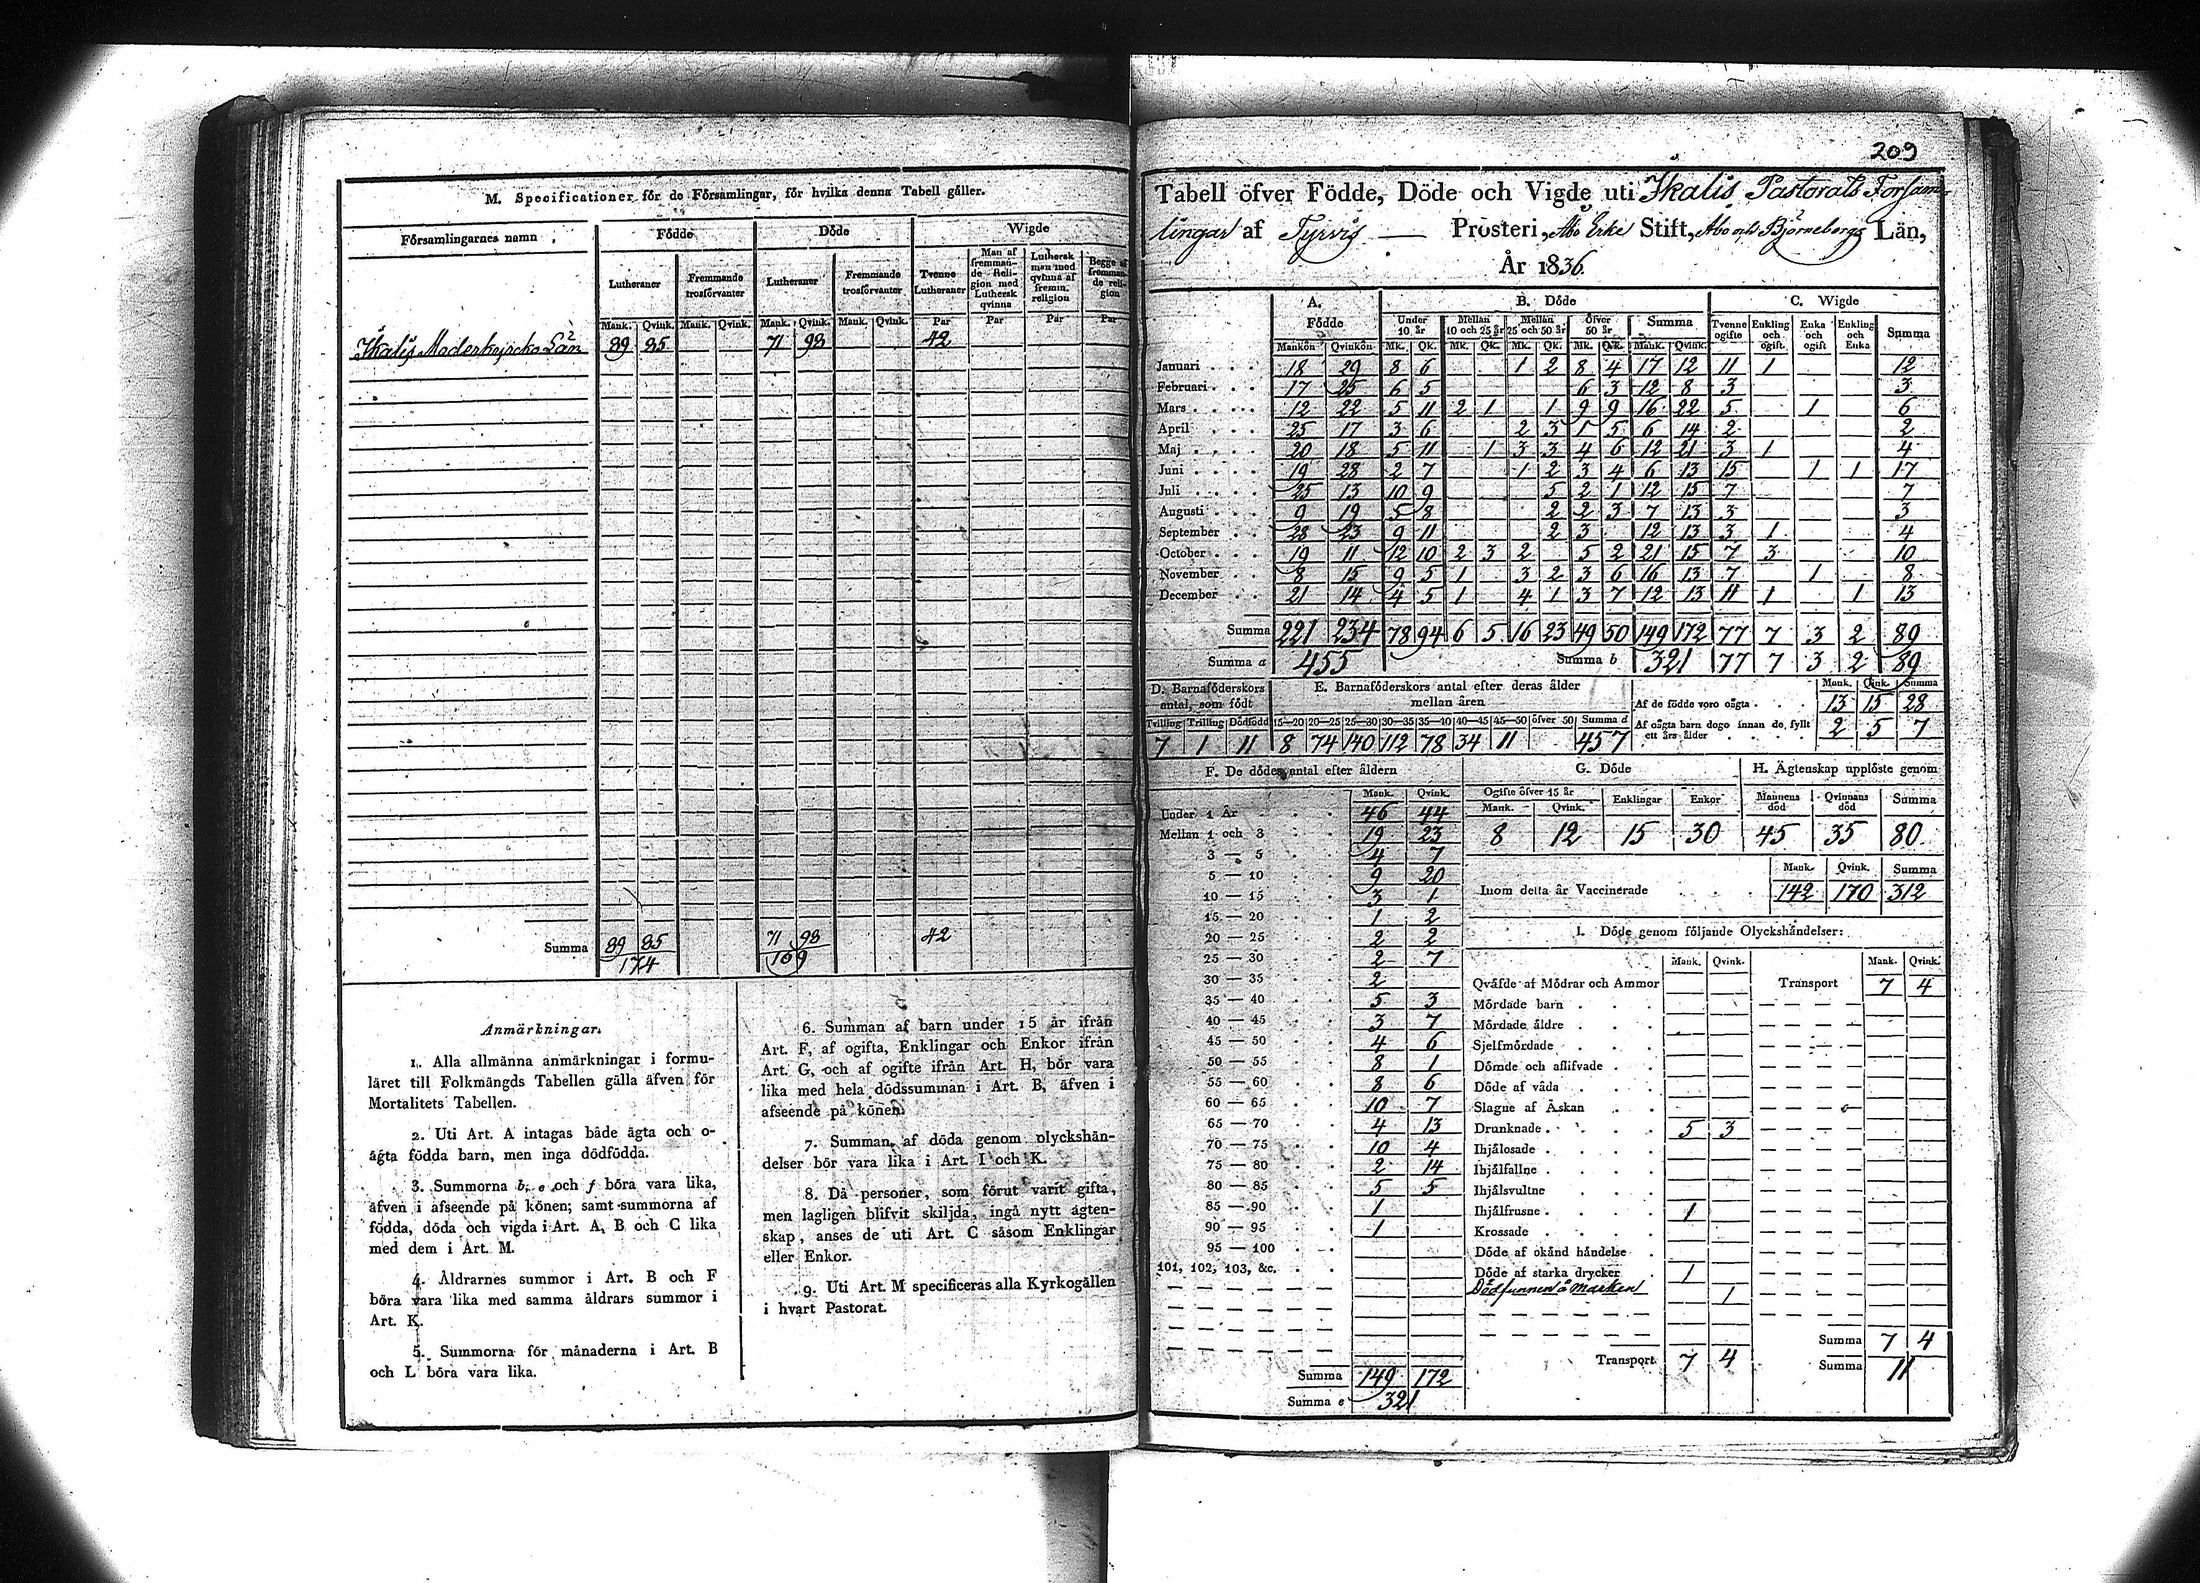 M. Specificationer för de Församlingar, för hvilka denna Tabell gäller.
Församlingarnes namn Födde Döde Wigde
Lutheraner Fremmande trosförvanter Lutheraner Fremmande trosförvanter Tvenne Lutheraner Man af fremmande Religion med Luthersk qvinna Luthersk man med qvinna af fremm. religion Begge af fremmande religion
Mank. Qvink. Mank. Qvink. Mank. Qvink. Mank. Qvink. Par Par Par Par
Ikalis Moderkyrcko Län 89 85 71 98 42
Summa 89 85 71 98 42
174 169
Anmärkningar.
1. Alla allmänna anmärkningar i formu-
läret till Folkmängds Tabellen gälla äfven för
Mortalitets Tabellen.
2. Uti Art. A intagas både ägta och o-
ägta födda barn, men inga dödfödda.
3. Summorna b, e och f böra vara lika,
äfven i afseende på könen; samt summorna af
födda, döda och vigda i Art. A, B och C lika
med dem i Art. M.
4. Åldrarnes summor i Art. B och F
böra vara lika med samma åldrars summor i
Art. K.
5. Summorna för månaderna i Art. B
och L böra vara lika.
6. Summan af barn under 15 år ifrån
Art. F, af ogifta, Enklingar och Enkor ifrån
Art. G, och af ogifte ifrån Art. H, bör vara
lika med hela dödssumman i Art. B, äfven i
afseende på könen.
7. Summan af döda genom olyckshän-
delser bör vara lika i Art. I och K.
8. Då personer, som förut varit gifta,
men lagligen blifvit skiljda, ingå nytt ägten-
skap, anses de uti Art. C såsom Enklingar
eller Enkor.
9. Uti Art. M specificeras alla Kyrkogällen
i hvart Pastorat.
209
Tabell öfver Födde, Döde och Vigde uti Ikalis Pastorats Försam-
lingar af Tyrvis — Prosteri, Åbo Erke Stift, Åbo och Björneborgs Län,
År 1836.
A. Födde B. Döde C. Wigde
Under 10 år Mellan 10 och 25 år Mellan 25 och 50 år Öfver 50 år Summa Tvenne ogifte Enkling och ogift. Enka och ogift Enkling och Enka Summa
Mankön Qvinkön Mk. Qk. Mk. Qk. Mk. Qk. Mk. Qk. Mank. Qvink.
Januari 18 29 8 6 1 2 8 4 17 12 11 1 12
Februari 17 25 6 5 6 3 12 8 3 3
Mars 12 22 5 11 2 1 1 9 9 16 22 5 1 6
April 25 17 3 6 2 3 1 5 6 14 2 2
Maj 20 18 5 11 1 3 3 4 6 12 21 3 1 4
Juni 19 28 2 7 1 2 3 4 6 13 15 1 1 17
Juli 25 13 10 9 5 2 1 12 15 7 7
Augusti 9 19 5 8 2 2 3 7 13 3 3
September 28 23 9 11 2 3 12 13 3 1 4
October 19 11 12 10 2 3 2 5 2 21 15 7 3 10
November 8 15 9 5 1 3 2 3 6 16 13 7 1 8
December 21 14 4 5 1 4 1 3 7 12 13 11 1 1 13
Summa 221 234 78 94 6 5 16 23 49 50 149 172 77 7 3 2 89
Summa a 455 Summa b 321 77 7 3 2 89
D. Barnaföderskors antal, som födt E. Barnaföderskors antal efter deras ålder mellan åren
Tvilling Trilling Dödfödd 15—20 20—25 25—30 30—35 35—40 40—45 45—50 öfver 50 Summa d
7 1 11 8 74 140 112 78 34 11 457
Mank. Qvink. Summa
Af de födde voro oägta 13 15 28
Af oägta barn dogo innan de fyllt ett års ålder 2 5 7
F. De dödes antal efter åldern
Mank. Qvink.
Under 1 År 46 44
Mellan 1 och 3 19 23
3 — 5 4 7
5 — 10 9 20
10 — 15 3 1
15 — 20 1 2
20 — 25 2 2
25 — 30 2 7
30 — 35 2
35 — 40 5 3
40 — 45 3 7
45 — 50 4 6
50 — 55 8 1
55 — 60 8 6
60 — 65 10 7
65 — 70 4 13
70 — 75 10 4
75 — 80 2 14
80 — 85 5 5
85 — 90 1
90 — 95 1
95 — 100
101, 102, 103, &c.
Summa 149 172
Summa e 321
G. Döde H. Ägtenskap upplöste genom
Ogifte öfver 15 år Enklingar Enkor Mannens död Qvinnans död Summa
Mank. Qvink.
8 12 15 30 45 35 80
Mank. Qvink. Summa
Inom detta år Vaccinerade 142 170 312
I. Döde genom följande Olyckshändelser:
Mank. Qvink. Mank. Qvink.
Qväfde af Mödrar och Ammor Transport 7 4
Mördade barn
Mördade äldre
Sjelfmördade
Dömde och aflifvade
Döde af våda
Slagne af Åskan
Drunknade 5 3
Ihjälosade
Ihjälfallne
Ihjälsvultne
Ihjälfrusne 1
Krossade
Döde af okänd händelse
Döde af starka drycker 1
Dödfunnen å Marken 1
Summa 7 4
Transport 7 4 Summa 11